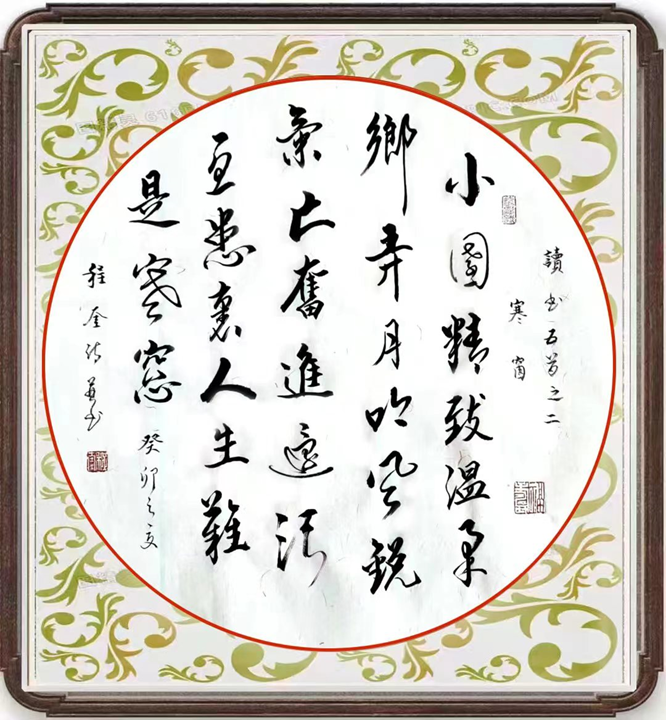 讀書五首之二
寒窗
小園精致溫柔
鄉弄月吟風銳
氣亡奮進還須
憂患裏人生難
是寒窗
癸卯之夏
程奎詩并書